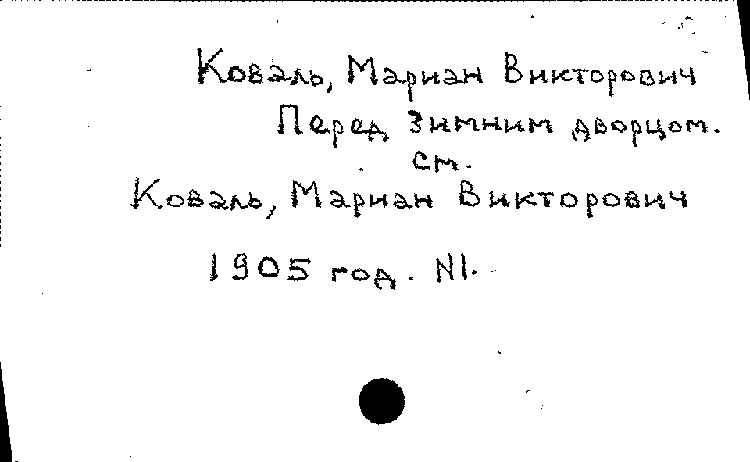 Коваль, Мариан Викторович
Перед Зимним дворцом.
см.
Коваль, Мариан Викторович
1905 год. N1.